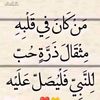 مَنْ كَانَ فِي قَلْبِهِ
مِثْقَالُ ذَرَّةِ حُبٍّ
لِلنَّبِيِّ فَلْيُصَلِّ عَلَيْهِ